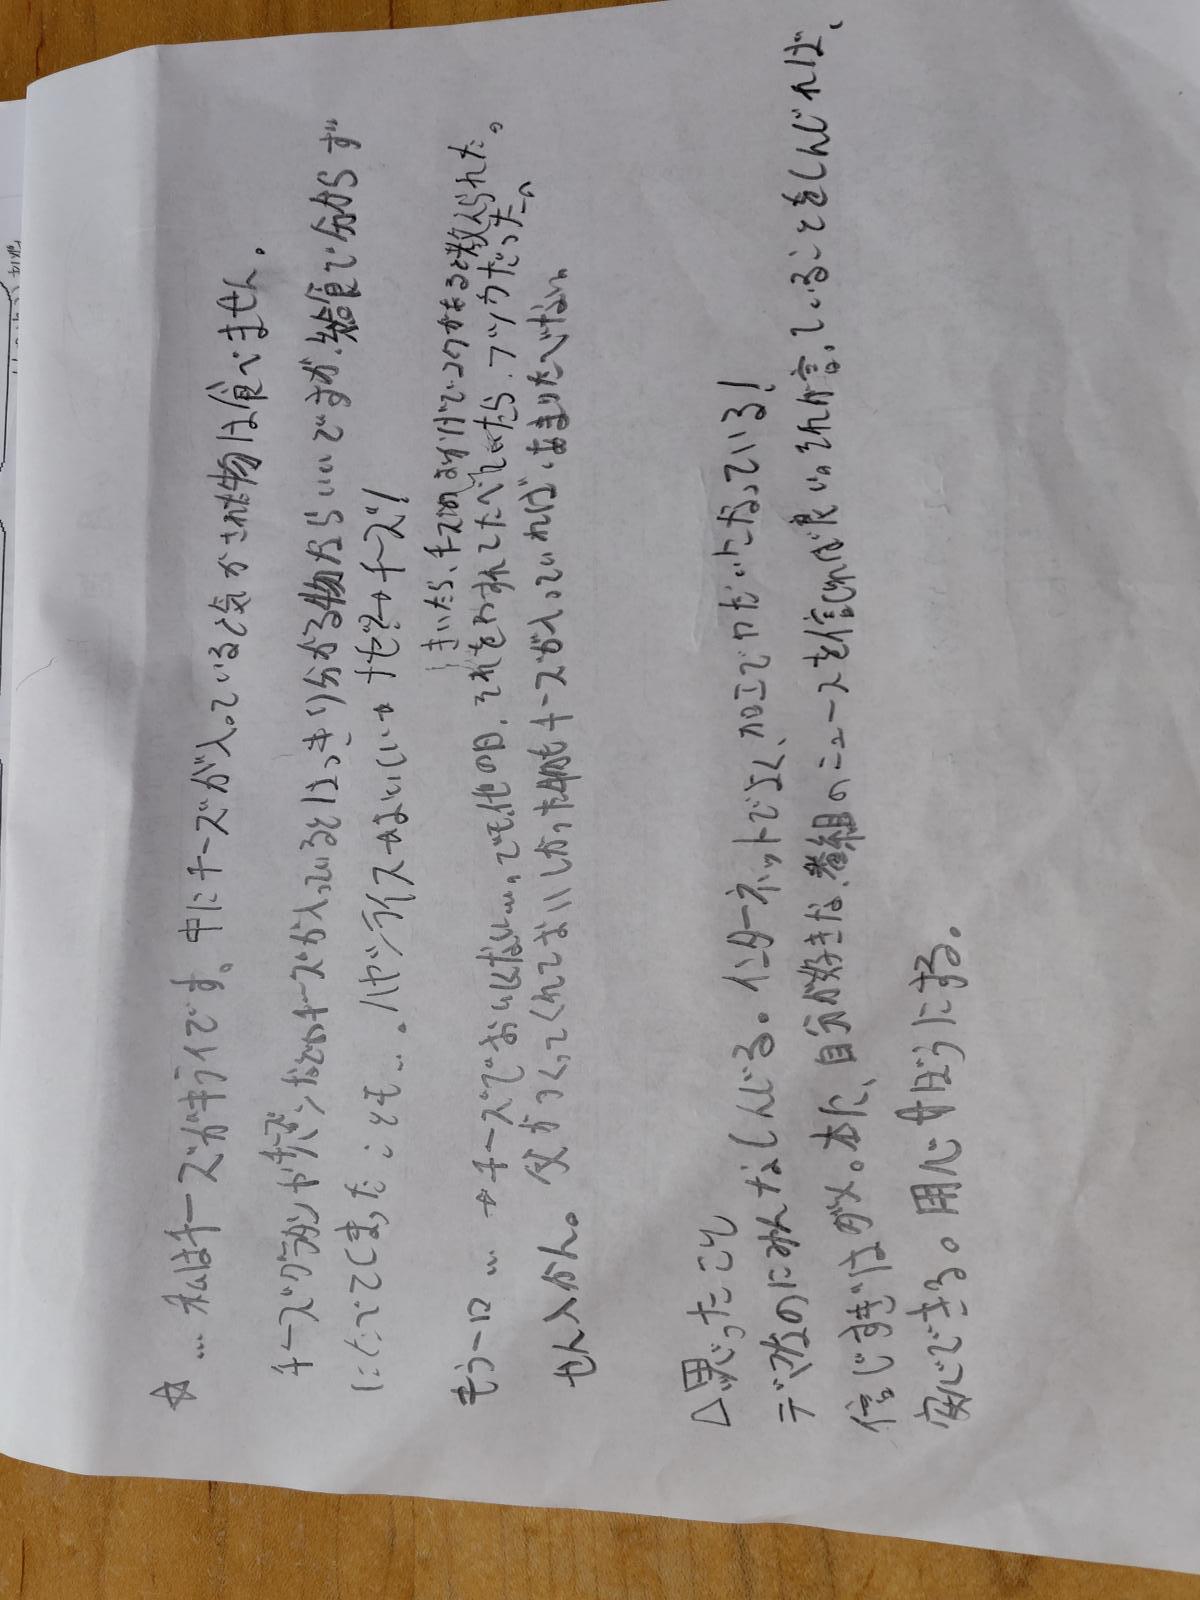 ☆ … 私はチーズがキライです。中にチーズが入っていると気がされた物は食べません。
チーズグラタンやチーズパンなどのチーズが入っているとはっきり分かる物ならいいですが、給食で分からず
にたべてしまったことも…。ハヤシライス
チーズ!
きいたら、チーズの
でコクがあると教えられた。
もう一口 …
チーズでおいしくない…。でも、他の日、それをわすれてたべてみたら、フツウだった。
父がつくってくれておいしかった物もチーズが入っていれば、あまりたべない
せん
△思ったこと
デマなのにみんなしんじる。インターネットでよく、加工でわだいになっている!
信じすぎはダメ。本に、自分が好きな番組のニュースを信じれば良い。それが言っていることをしんじれば、
安心できる。用心
ぼうにする。